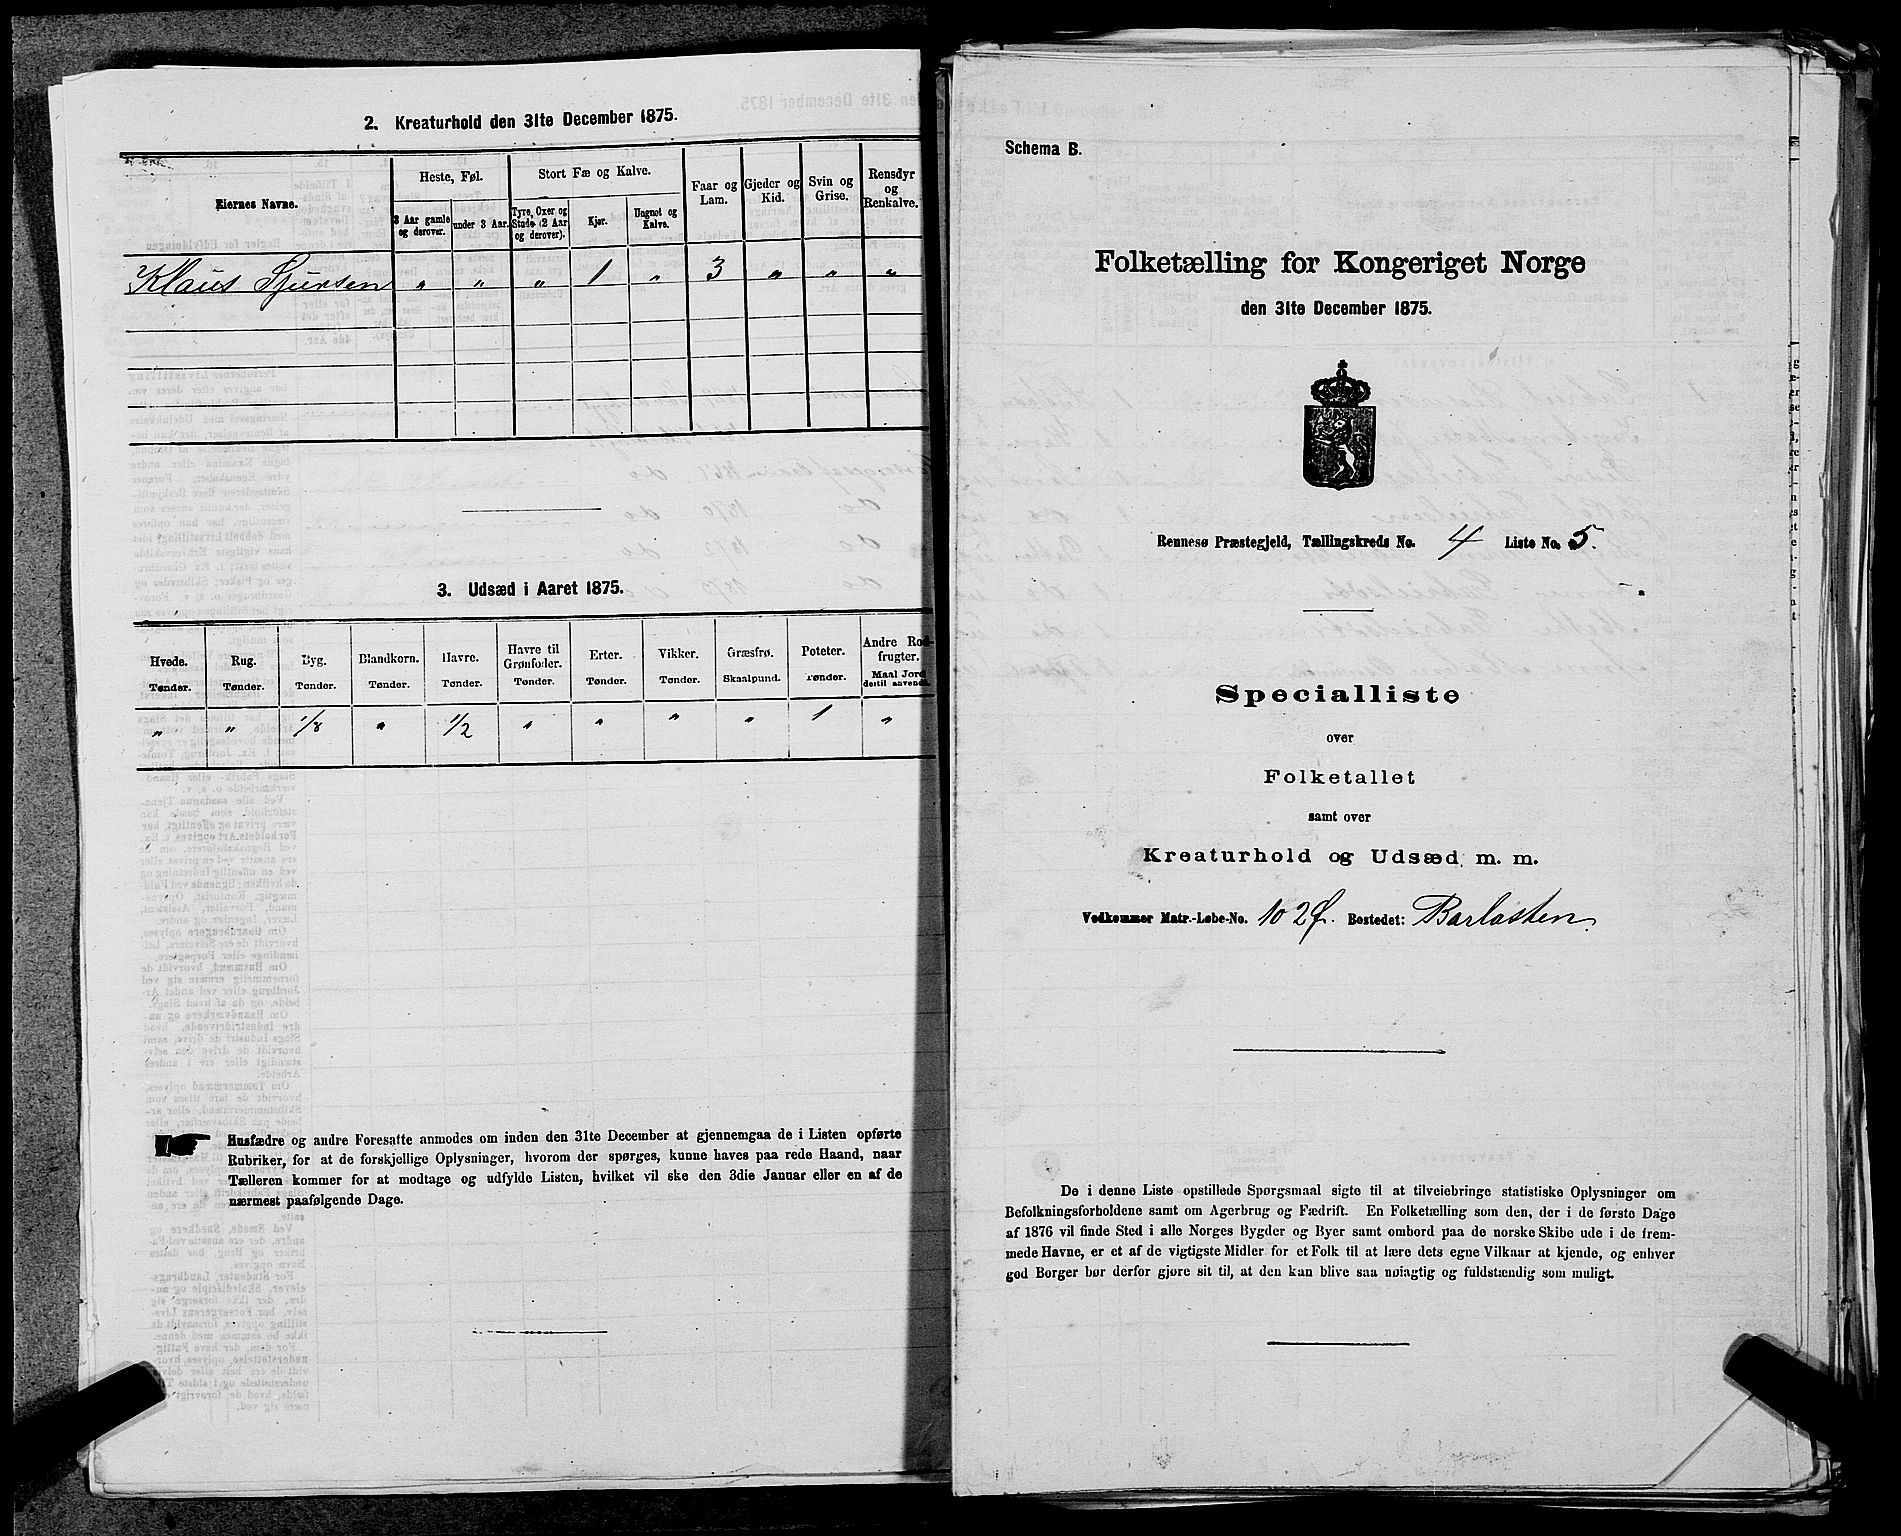 2. Kreaturhold den 31te December 1875.
Eiernes Navne.
Heste, Føl.
Stort Fæ og Kalve.
Faar og Lam.
Gjeder og Kid.
Svin og Grise.
Rensdyr og Renkalve.
3 Aar gamle og derover.
under 3 Aar.
Tyre, Oxer og Stude (2 Aar og derover).
Kjør.
Ungnøt og Kalve.
Klaus Sjursen " " " 1 " 3 " " "
3. Udsæd i Aaret 1875.
Hvede. Rug. Byg. Blandkorn. Havre. Havre til Grønfoder. Erter. Vikker. Græsfrø. Poteter. Andre Rodfrugter.
Tønder. Tønder. Tønder. Tønder. Tønder. Tønder. Tønder. Tønder. Skaalpund. Tønder. Maal Jord dertil anvendt.
" " 1/8 " 1/2 " " " " 1 "
Husfædre og andre Foresatte anmodes om inden den 31te December at gjennemgaa de i Listen opførte
Rubriker, for at de forskjellige Oplysninger, hvorom der spørges, kunne haves paa rede Haand, naar
Tælleren kommer for at modtage og udfylde Listen, hvilket vil ske den 3die Januar eller en af de
nærmest paafølgende Dage.
Schema B.
Folketælling for Kongeriget Norge
den 31te December 1875.
Rennesø Præstegjeld, Tællingskreds No. 4 Liste No. 5.
Specialliste
over
Folketallet
samt over
Kreaturhold og Udsæd m. m.
Vedkommer Matr.-Løbe-No. 102 Bostedet: Barlasten.
De i denne Liste opstillede Spørgsmaal sigte til at tilveiebringe statistiske Oplysninger om
Befolkningsforholdene samt om Agerbrug og Fædrift. En Folketælling som den, der i de første Dage
af 1876 vil finde Sted i alle Norges Bygder og Byer samt ombord paa de norske Skibe ude i de frem-
mede Havne, er et af de vigtigste Midler for et Folk til at lære dets egne Vilkaar at kjende, og enhver
god Borger bør derfor gjøre sit til, at den kan blive saa nøiagtig og fuldstændig som muligt.